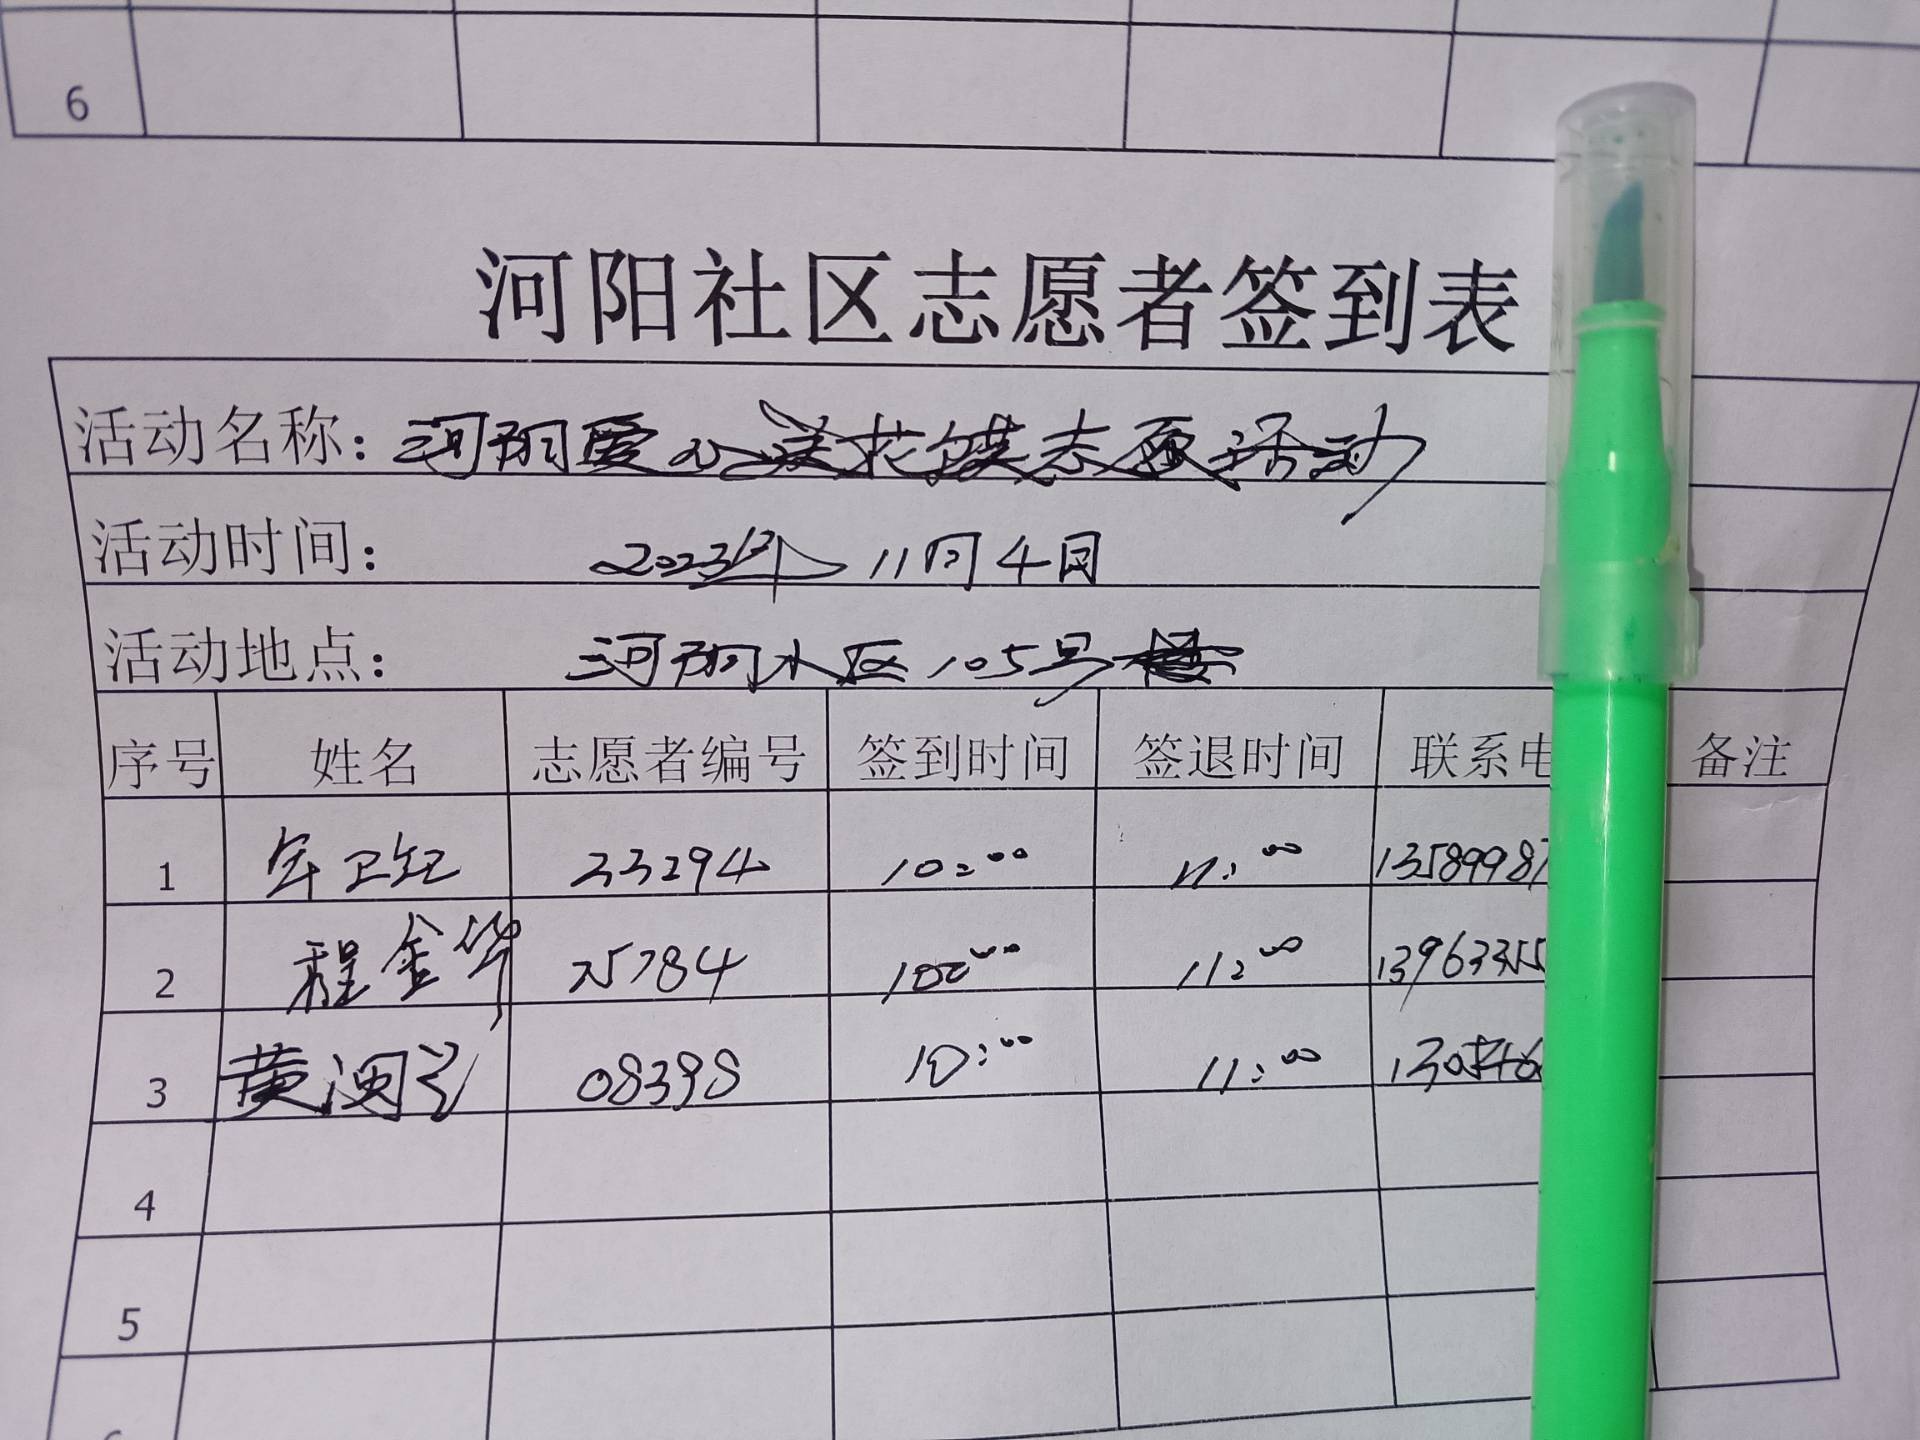 6
河阳社区志愿者签到表
活动名称：河阳爱心送花馍志愿活动
活动时间：2023年11月4日
活动地点：河阳小区105号楼
序号 姓名 志愿者编号 签到时间 签退时间 联系电 备注
1 33294 10:00 11:00 13589987
2 程金华 25784 10:00 11:00 13963355
3 黄 08398 10:00 11:00 130546
4
5